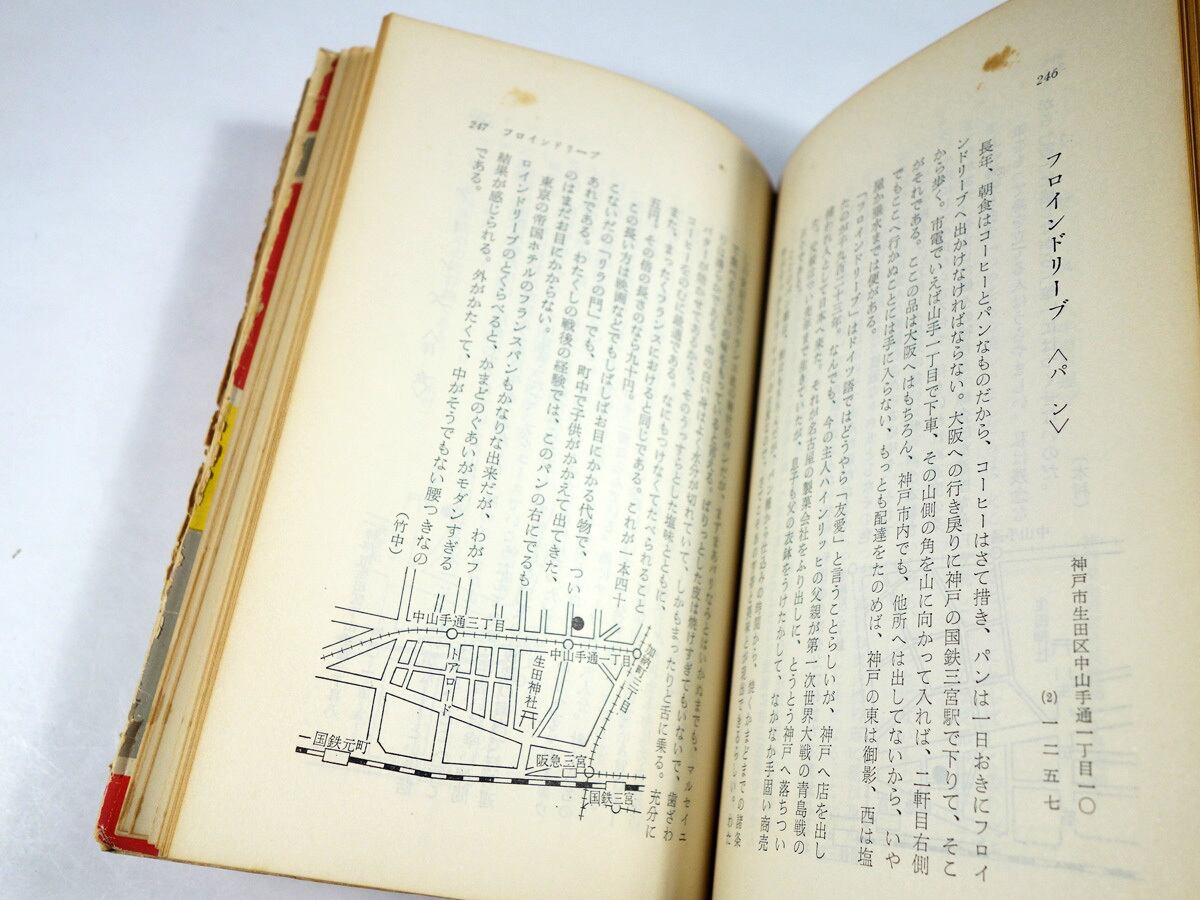 246
フロインドリーブ 〈パ ン〉
神戸市生田区中山手通一丁目一〇
(2) 一二五七
長年、朝食はコーヒーとパンなものだから、コーヒーはさて措き、パンは一日おきにフロイ
ンドリーブへ出かけなければならない。大阪への行き戻りに神戸の国鉄三宮駅で下りて、そこ
から歩く。市電でいえば山手一丁目で下車、その山側の角を山に向かって入れば、二軒目右側
がそれである。ここの品は大阪へはもちろん、神戸市内でも、他所へは出してないから、いや
でもここへ行かぬことには手に入らない、もっとも配達をたのめば、神戸の東は御影、西は塩
屋か垂水までは便がある。
「フロインドリーブ」はドイツ語ではどうやら「友愛」と言うことらしいが、神戸へ店を出し
たのが千九百二十三年。なんでも、今の主人ハインリッヒの父親が第一次世界大戦の青島戦の
捕われ人として日本へ来た。それが名古屋の製菓会社をふり出しに、とうとう神戸へ落ちつい
息子も父の衣鉢をうけたかして、なかなか手固い商売
247 フロインドリーブ
バターが
コーヒーをのむに最適である。なにもつけなくてたべられること
また、まったくフランスにおけると同じである。これが一本四十
五円、その倍の長さのなら九十円。
この長い方は映画などでもしばしばお目にかかる代物で、つい
こないだの「リラの門」でも、町中で子供がかかえて出てきた、
あれである。わたくしの戦後の経験では、このパンの右にでるも
のはまだお目にかからない。
東京の帝国ホテルのフランスパンもかなりな出来だが、わがフ
ロインドリーブのとくらべると、かまどのぐあいがモダンすぎる
結果が感じられる。外がかたくて、中がそうでもない腰つきなの
である。
(竹中)
中山手通三丁目
中山手通一丁目
加納町三丁目
トアロード
生田神社
国鉄元町
阪急三宮
国鉄三宮